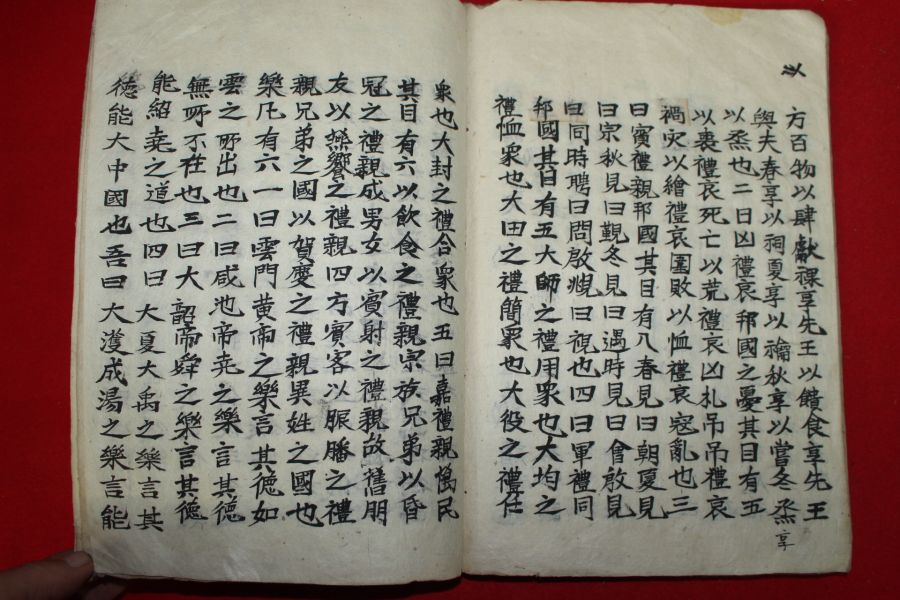 以
方百物以肆獻祼享先王以饋食享先王
與夫春享以祠夏享以禴秋享以嘗冬烝享
以烝也二曰凶禮哀邦國之憂其目有五
以喪禮哀死亡以荒禮哀凶札吊吊禮哀
禍灾以繪禮哀圍敗以恤禮哀寇亂也三
曰賓禮親邦國其目有八春見曰朝夏見
曰宗秋見曰覲冬見曰遇時見曰會殷見
曰同時聘曰問殷覜曰視也四曰軍禮同
邦國其目有五大師之禮用衆也大均之
禮恤衆也大田之禮簡衆也大役之禮任
衆也大封之禮合衆也五曰嘉禮親萬民
其目有六以飮食之禮親宗族兄弟以昏
冠之禮親成男女以賓射之禮親故舊朋
友以饗之禮親四方賓客以脤膰之禮
親兄弟之國以賀慶之禮親異姓之國也
樂凡有六一曰雲門黃帝之樂言其德如
雲之所出也二曰咸池帝堯之樂言其德
無所不在也三曰大韶帝舜之樂言其德
能紹堯之道也四曰大夏大禹之樂言其
德能大中國也吾曰大濩成湯之樂言能